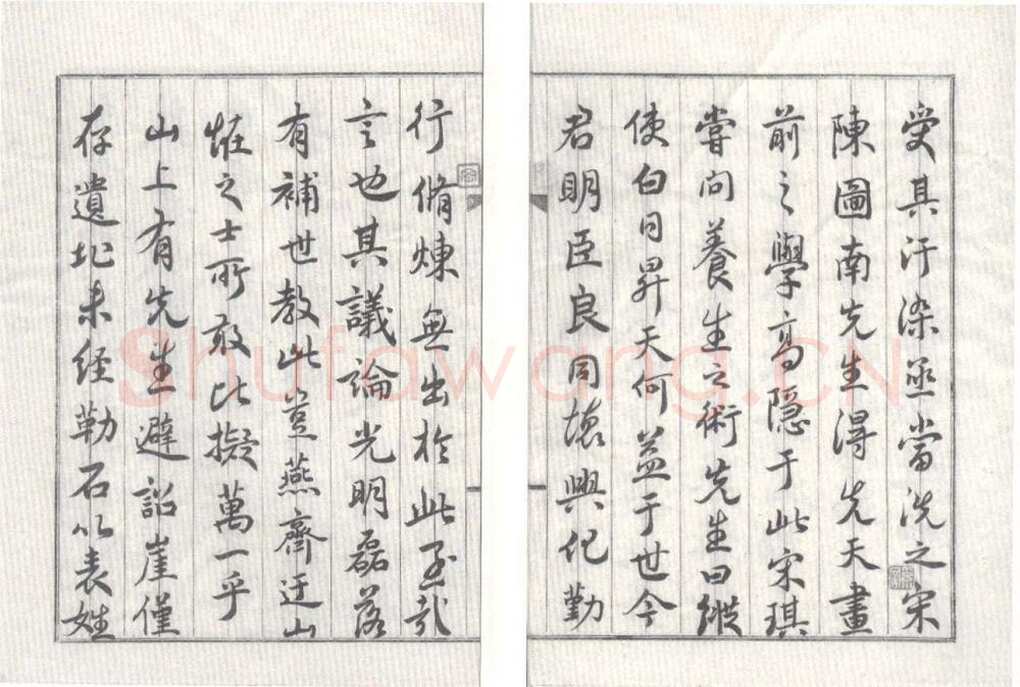 受其汙染亟當洗之宋
陳圖南先生得先天畫
前之學高隱于此宋琪
嘗問養生之術先生曰縱
使白日昇天何益于世今
君明臣良同德興化勤
行脩煉無出於此至哉
言也其議論光明磊落
有補世教此豈燕齊迂
恠之士所敢比擬萬一乎
山上有先生避詔崖僅
存遺址未經勒石以表姓
Shufawang.CN